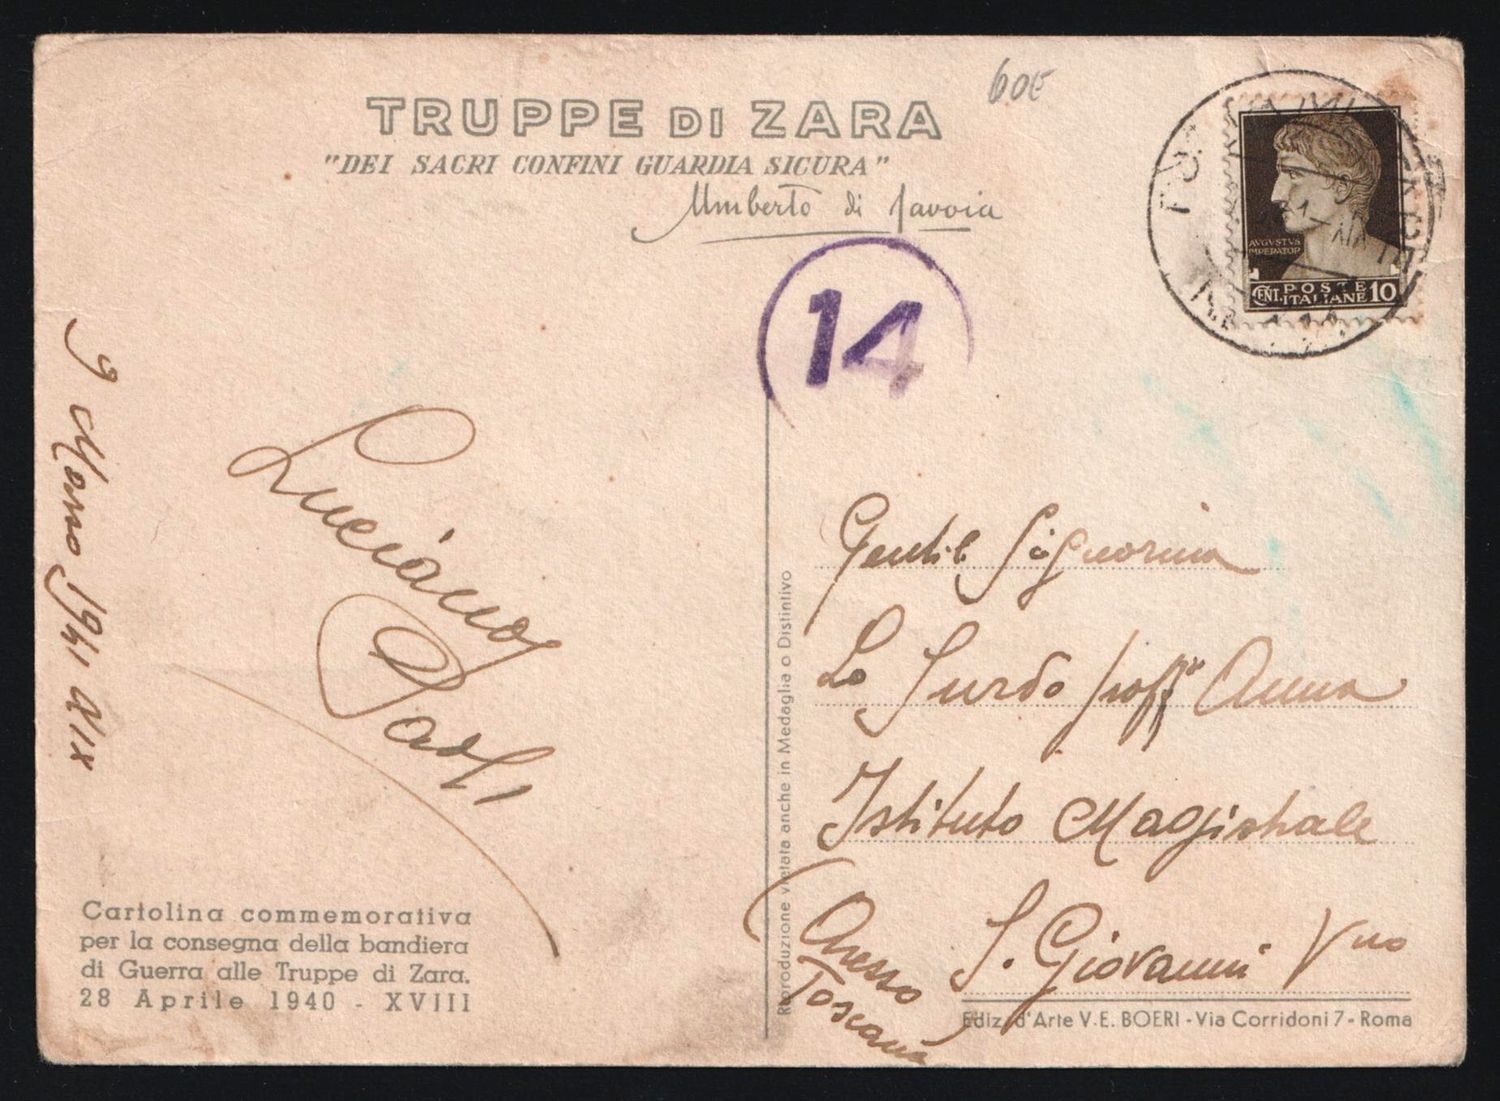 60E
TRUPPE DI ZARA
"DEI SACRI CONFINI GUARDIA SICURA"
Umberto di Savoia
AVGVSTVS
IMPERATOR
CENT. POSTE ITALIANE 10
14
9 Marzo 1941 XIX
Luciano
Paoli
Gentil. Signorina
Lo Surdo Proff. Anna
Istituto Magistrale
S. Giovanni V.no
(Arezzo
Toscana
Cartolina commemorativa
per la consegna della bandiera
di Guerra alle Truppe di Zara.
28 Aprile 1940 - XVIII
Riproduzione vietata anche in Medaglia o Distintivo
Ediz. d'Arte V. E. BOERI - Via Corridoni 7 - Roma